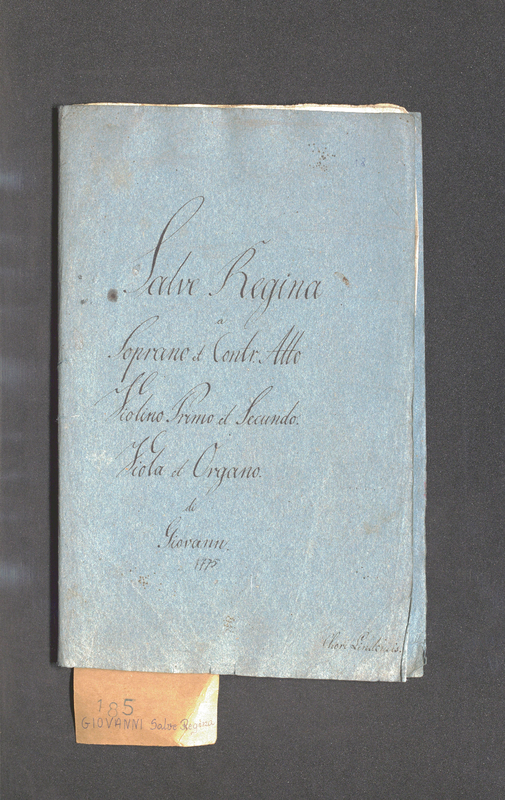 Salve Regina
a
Soprano et Contr. Alto
Violino Primo et Secundo.
Viola et Organo.
di
Giovann.
1775
Chori
185
GIOVANNI Salve Regina